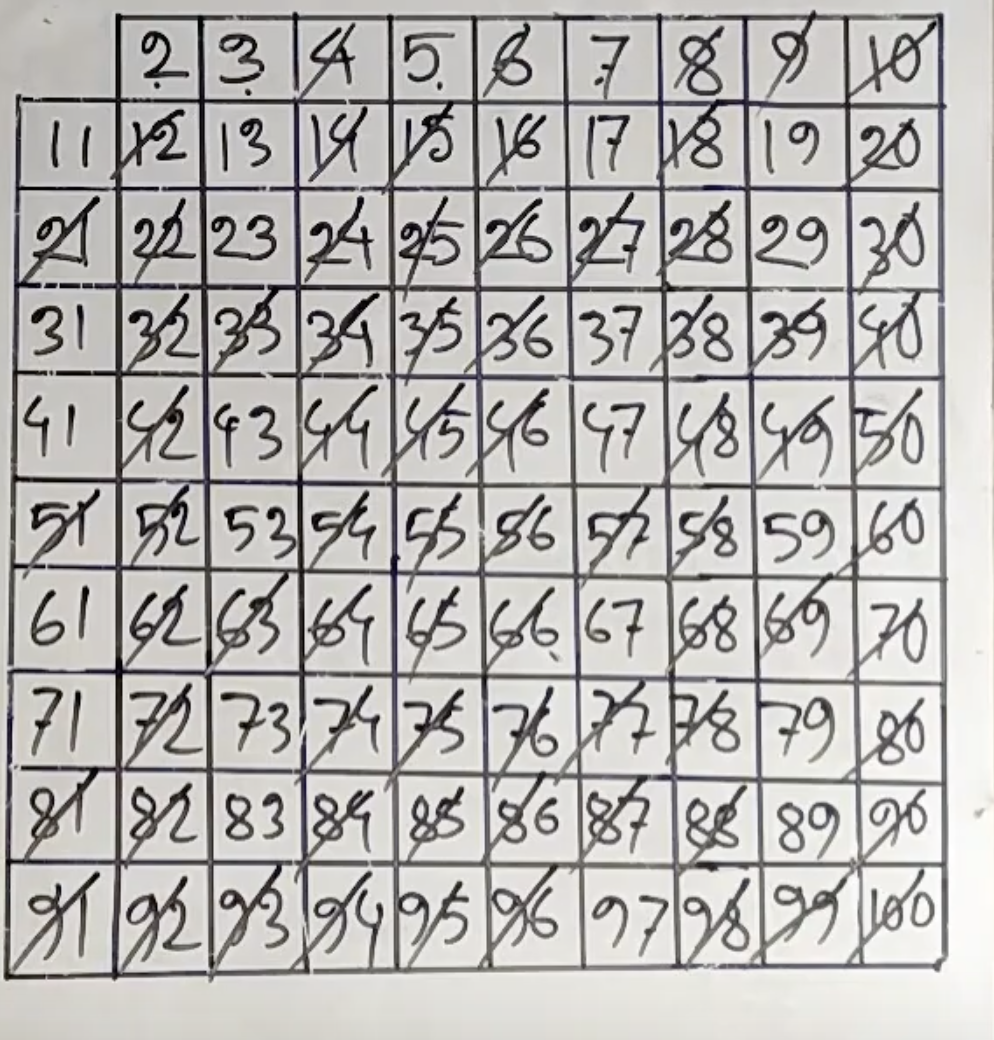 2 3 4 5 6 7 8 9 10
11 12 13 14 15 16 17 18 19 20
21 22 23 24 25 26 27 28 29 30
31 32 33 34 35 36 37 38 39 40
41 42 43 44 45 46 47 48 49 50
51 52 53 54 55 56 57 58 59 60
61 62 63 64 65 66 67 68 69 70
71 72 73 74 75 76 77 78 79 80
81 82 83 84 85 86 87 88 89 90
91 92 93 94 95 96 97 98 99 100